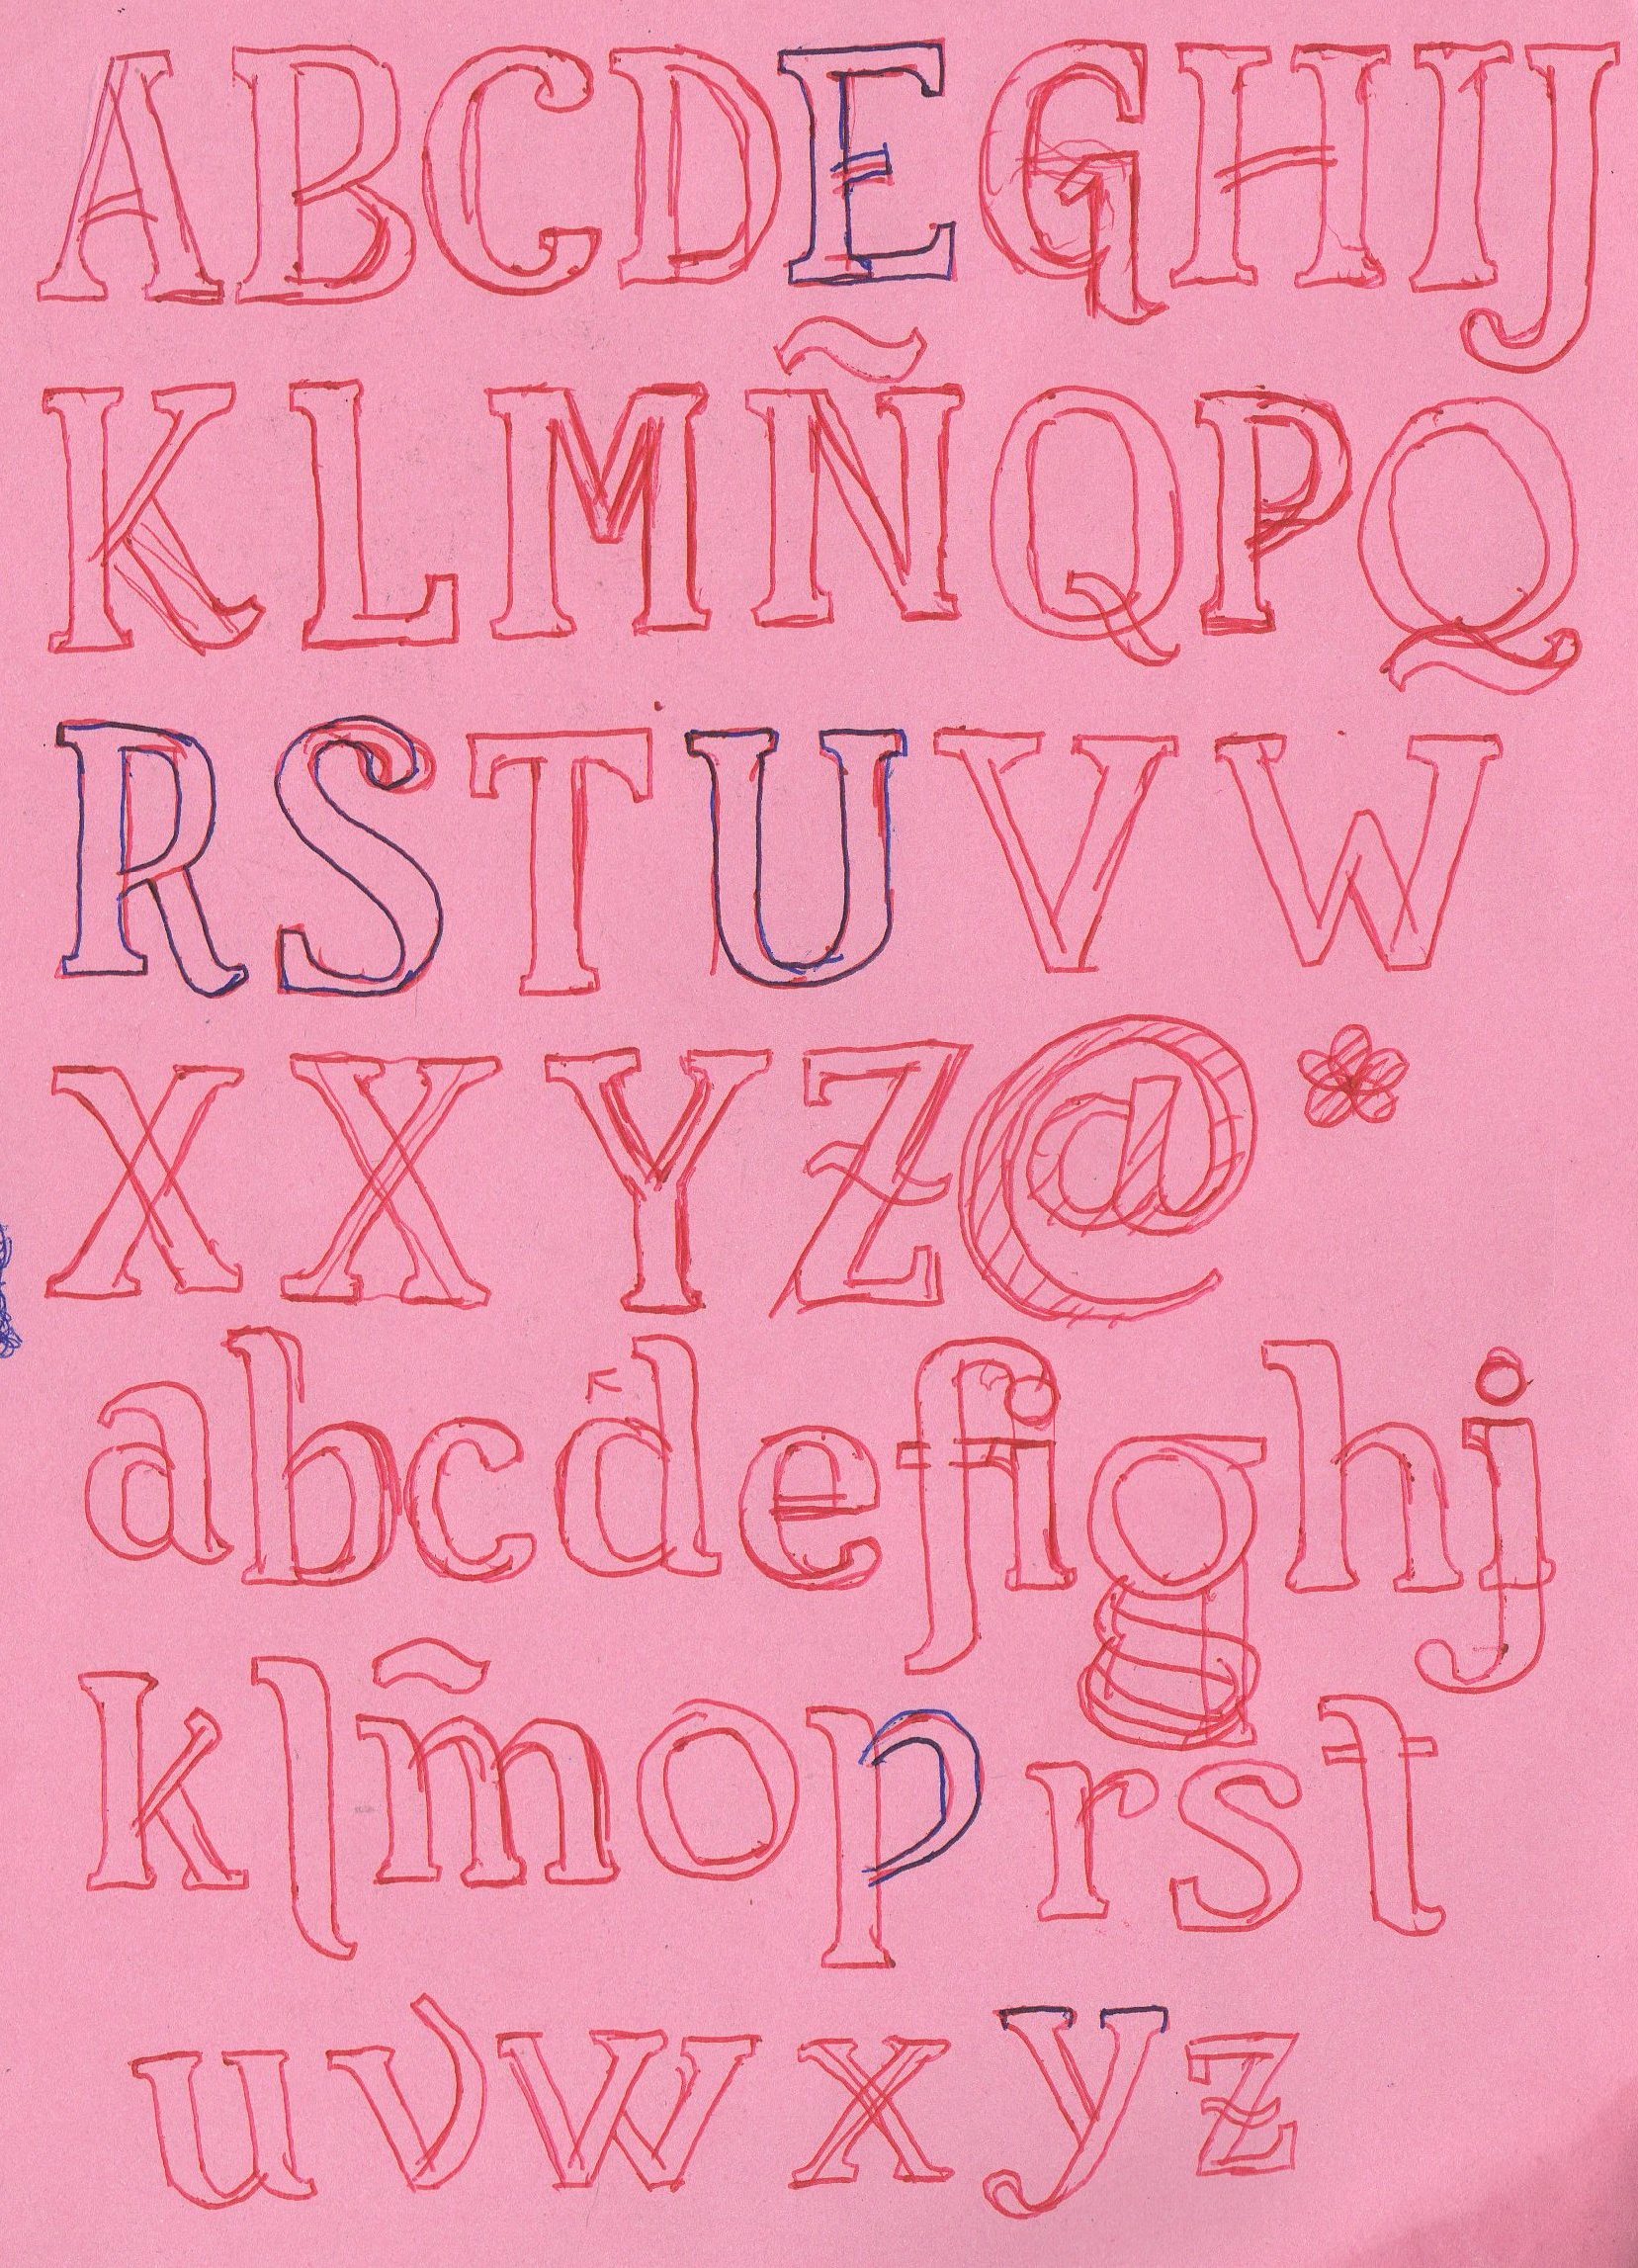 ABCDEGHIJ
KLMÑQPQ
RSTUVW
XXYZ@*
abcdefighj
klm̃oprst
uvwxyz